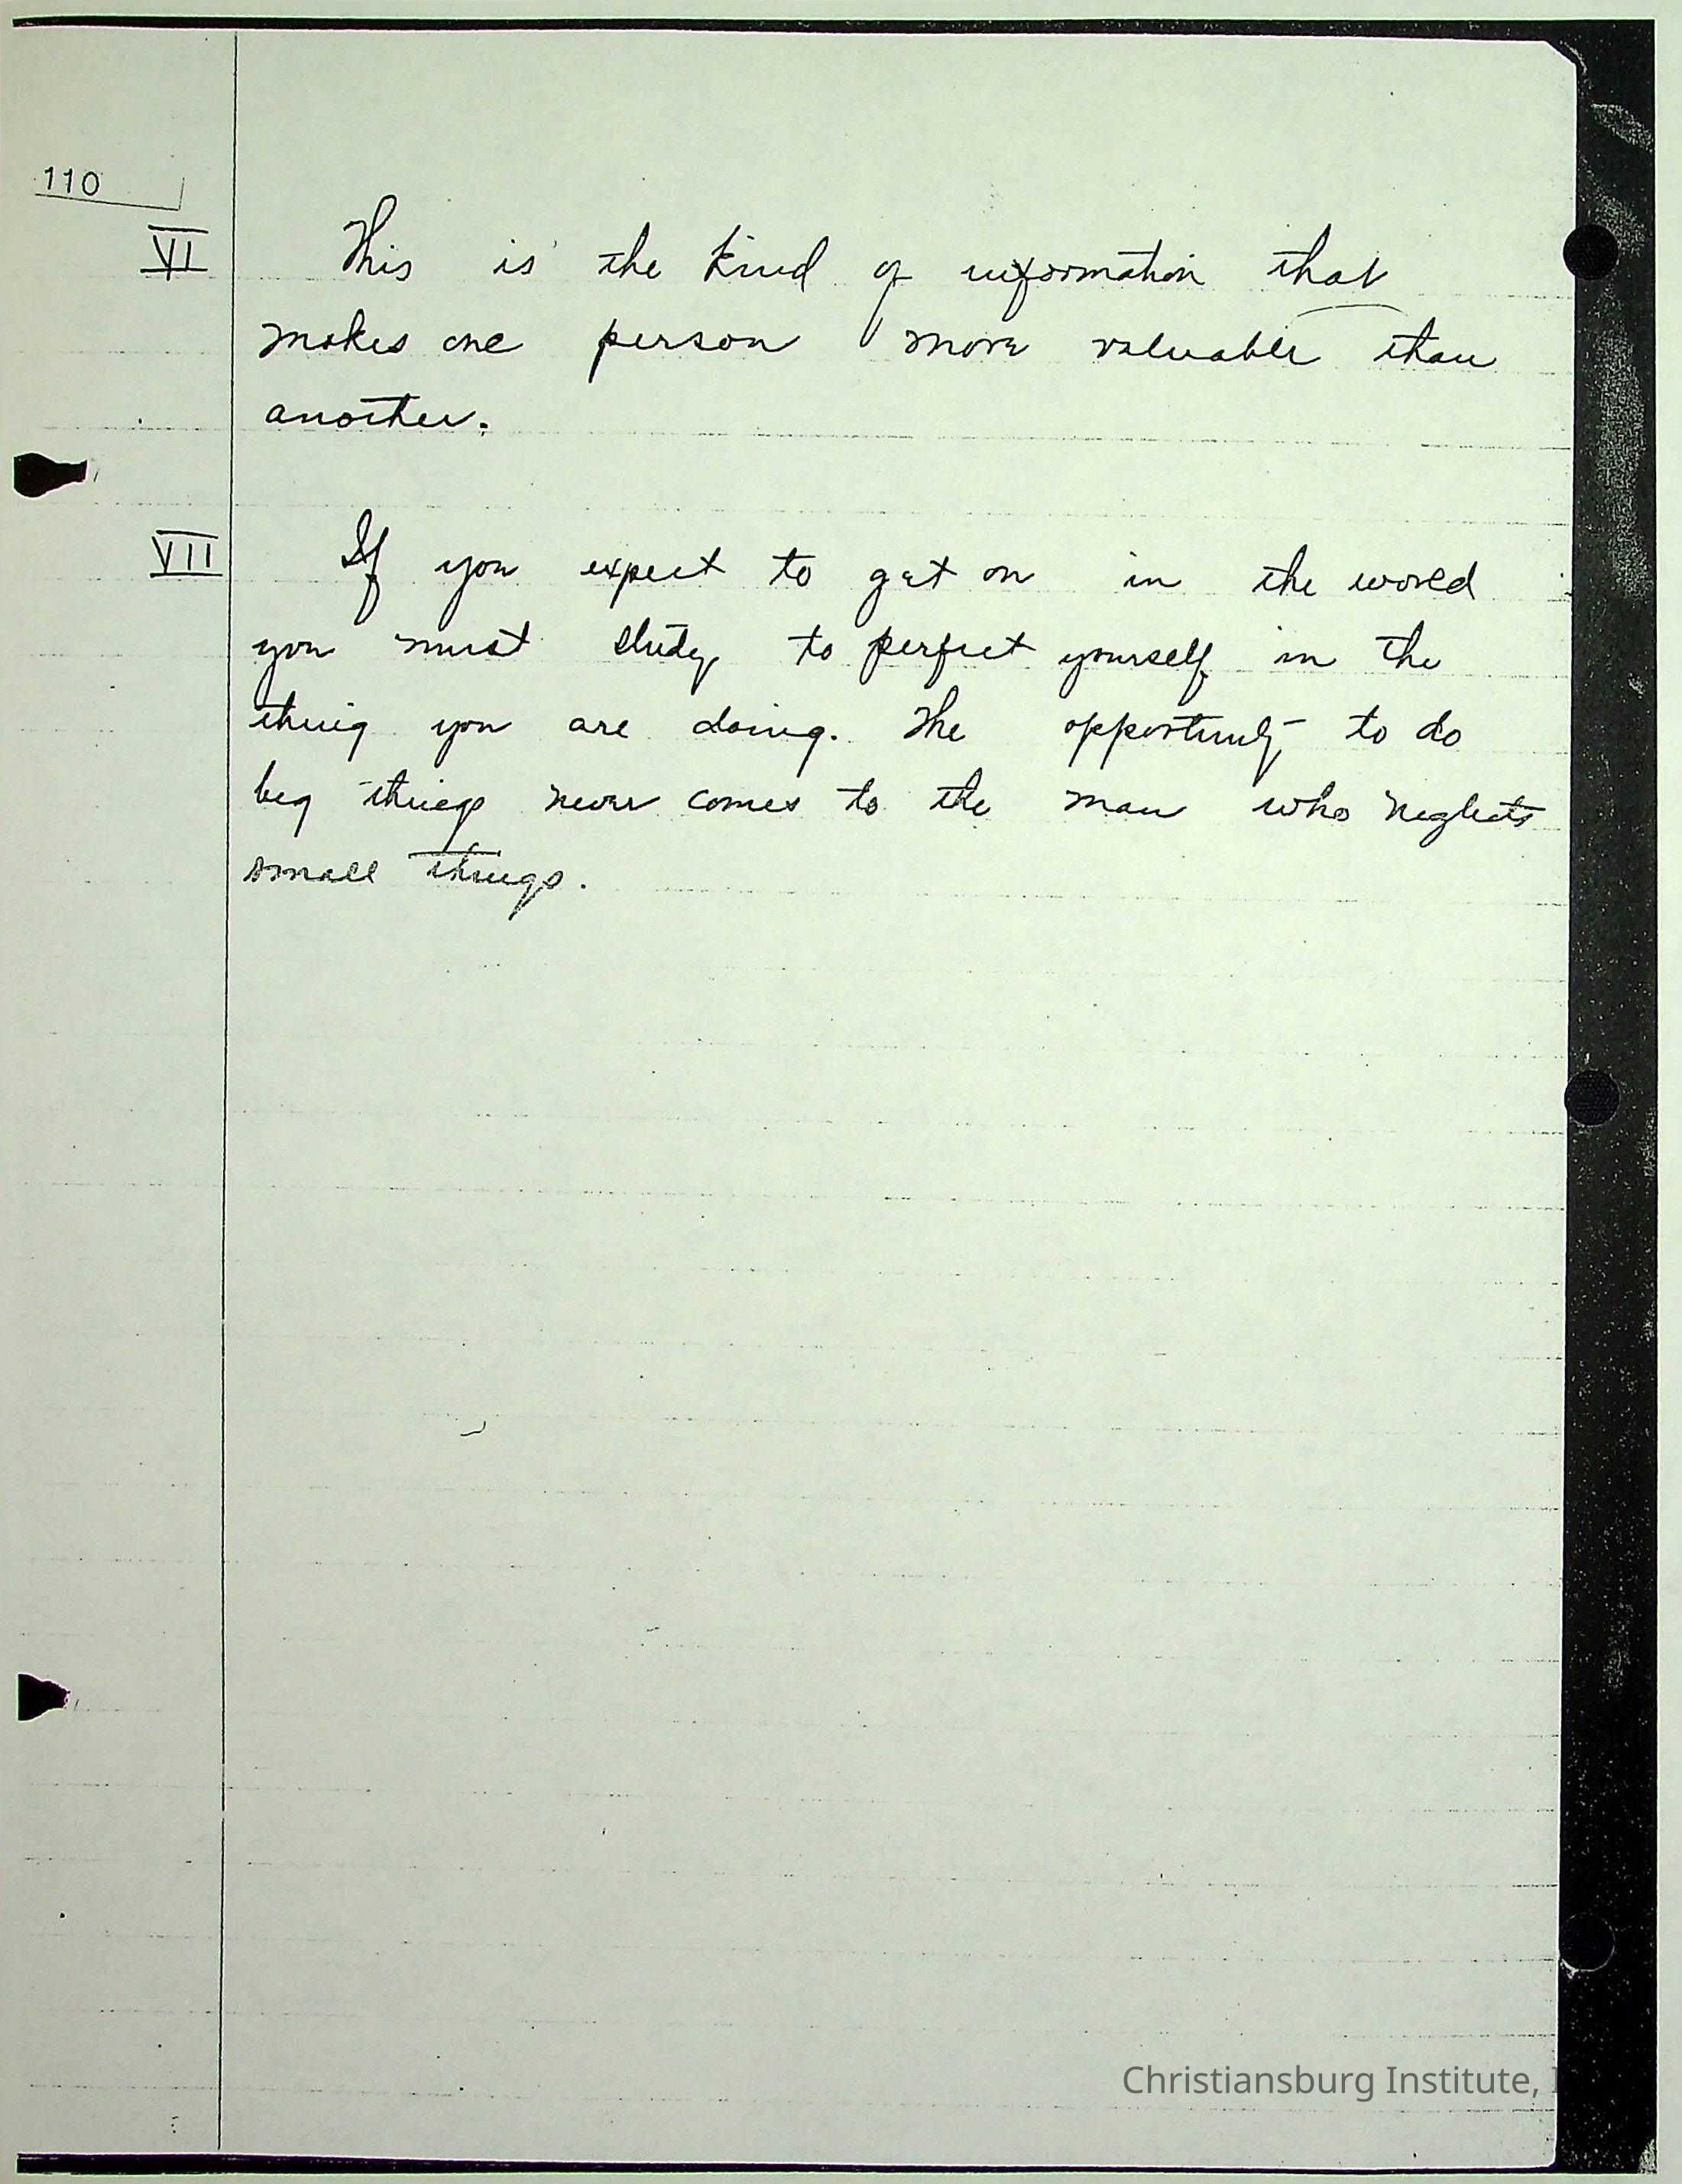 110
VI This is the kind of information that
makes one person more valuable than
another.
VII If you expect to get on in the world
you must study to perfect yourself in the
thing you are doing. The opportunity to do
big things never comes to the man who neglects
small things.
Christiansburg Institute, I